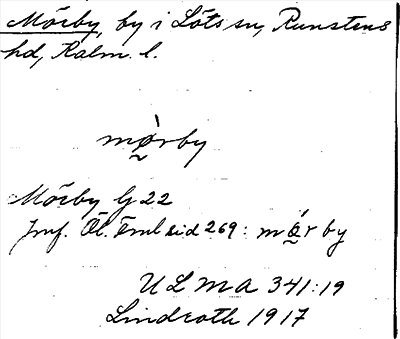 Mörby, by i Löts sn, Runstens
hd, Kalm. l.
mø̀rby
Mörby G 22
Jmf. Öl. Eml sid 269: mǿrby
ULMA 341:19
Lindroth 1917